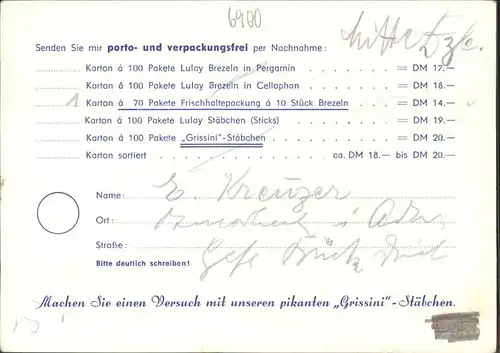 6900
Senden Sie mir porto- und verpackungsfrei per Nachnahme:
Karton á 100 Pakete Lulay Brezeln in Pergamin = DM 17.—
Karton á 100 Pakete Lulay Brezeln in Cellophan = DM 18.—
1 Karton á 70 Pakete Frischhaltepackung á 10 Stück Brezeln = DM 14.—
Karton á 100 Pakete Lulay Stäbchen (Sticks) = DM 19.—
Karton á 100 Pakete „Grissini"-Stäbchen = DM 20.—
Karton sortiert ca. DM 18.— bis DM 20.—
Name: E. Kreuzer
Ort:
Straße:
Bitte deutlich schreiben!
Machen Sie einen Versuch mit unseren pikanten „Grissini"-Stäbchen.